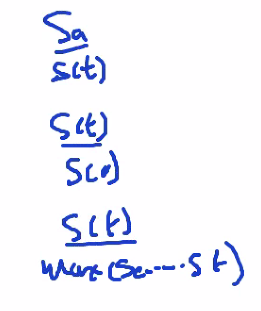 Sa
S(t)
S(t)
S(0)
S(t)
max(S0....St)